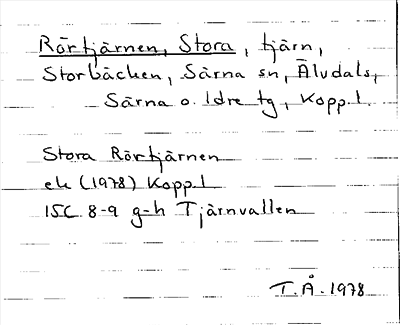 Rörtjärnen, Stora, tjärn,
Storbäcken, Särna sn, Älvdals,
Särna o. Idre tg, Kopp. l.
Stora Rörtjärnen
ek (1978) Kopp. l
15C 8-9 g-h Tjärnvallen
T.Å. 1978